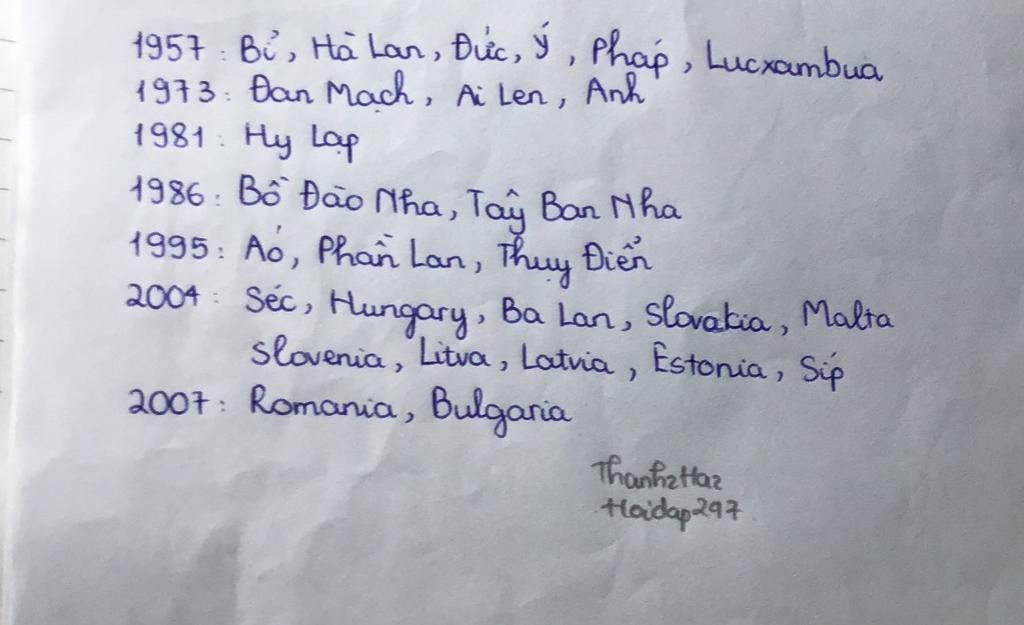 1957: Bỉ, Hà Lan, Đức, Ý, Pháp, Lucxambua
1973: Đan Mạch, Ai Len, Anh
1981: Hy Lạp
1986: Bồ Đào Nha, Tây Ban Nha
1995: Áo, Phần Lan, Thụy Điển
2004: Séc, Hungary, Ba Lan, Slovakia, Malta
Slovenia, Litva, Latvia, Estonia, Síp
2007: Romania, Bulgaria
Thanh2Ha2
Hoidap247